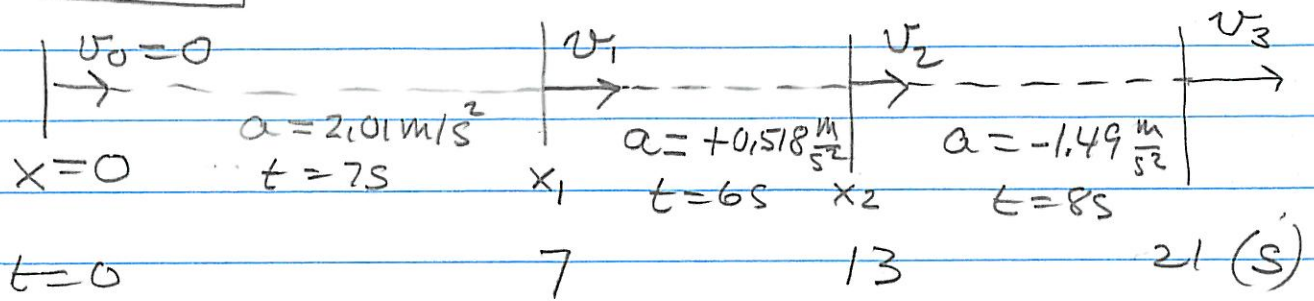 v₀ = 0 v₁ v₂ v₃
a = 2,01 m/s² a = +0,518 m/s² a = -1.49 m/s²
x = 0 t = 7s x₁ t = 6s x₂ t = 8s
t = 0 7 13 21 (s)